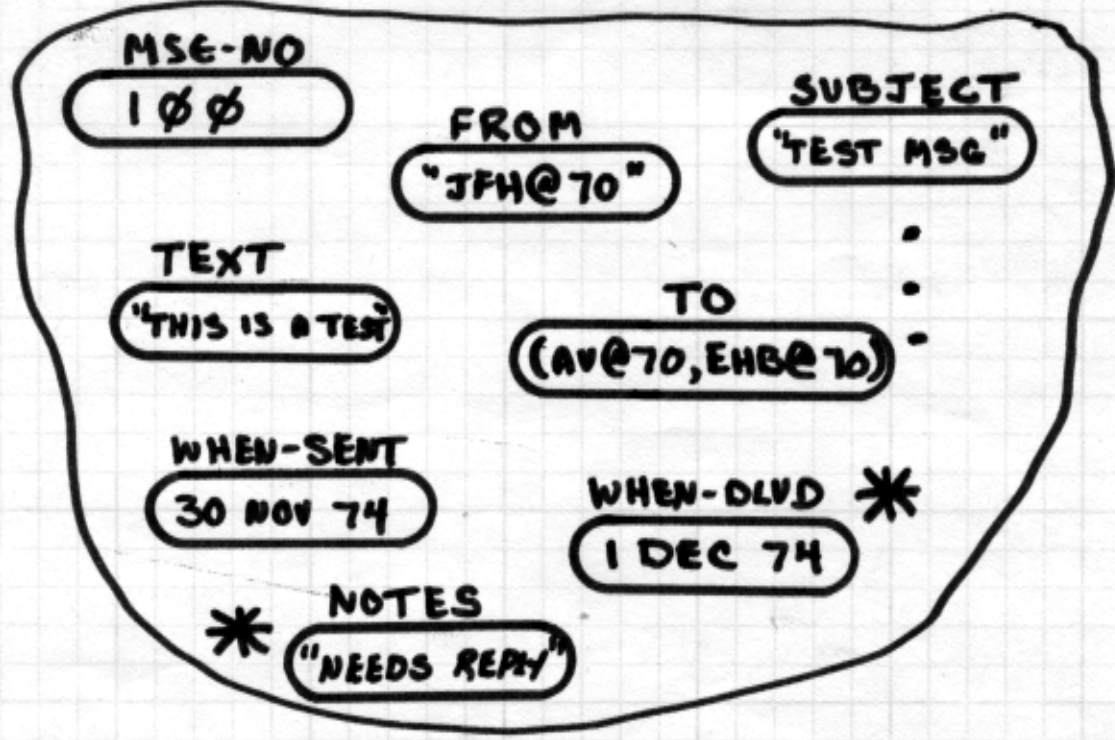 MSG-NO
1ØØ
FROM
"JFH@70"
SUBJECT
"TEST MSG"
TEXT
"THIS IS A TEST"
TO
(AV@70, EHB@70)
WHEN-SENT
30 NOV 74
WHEN-DLVD *
1 DEC 74
* NOTES
"NEEDS REPLY"